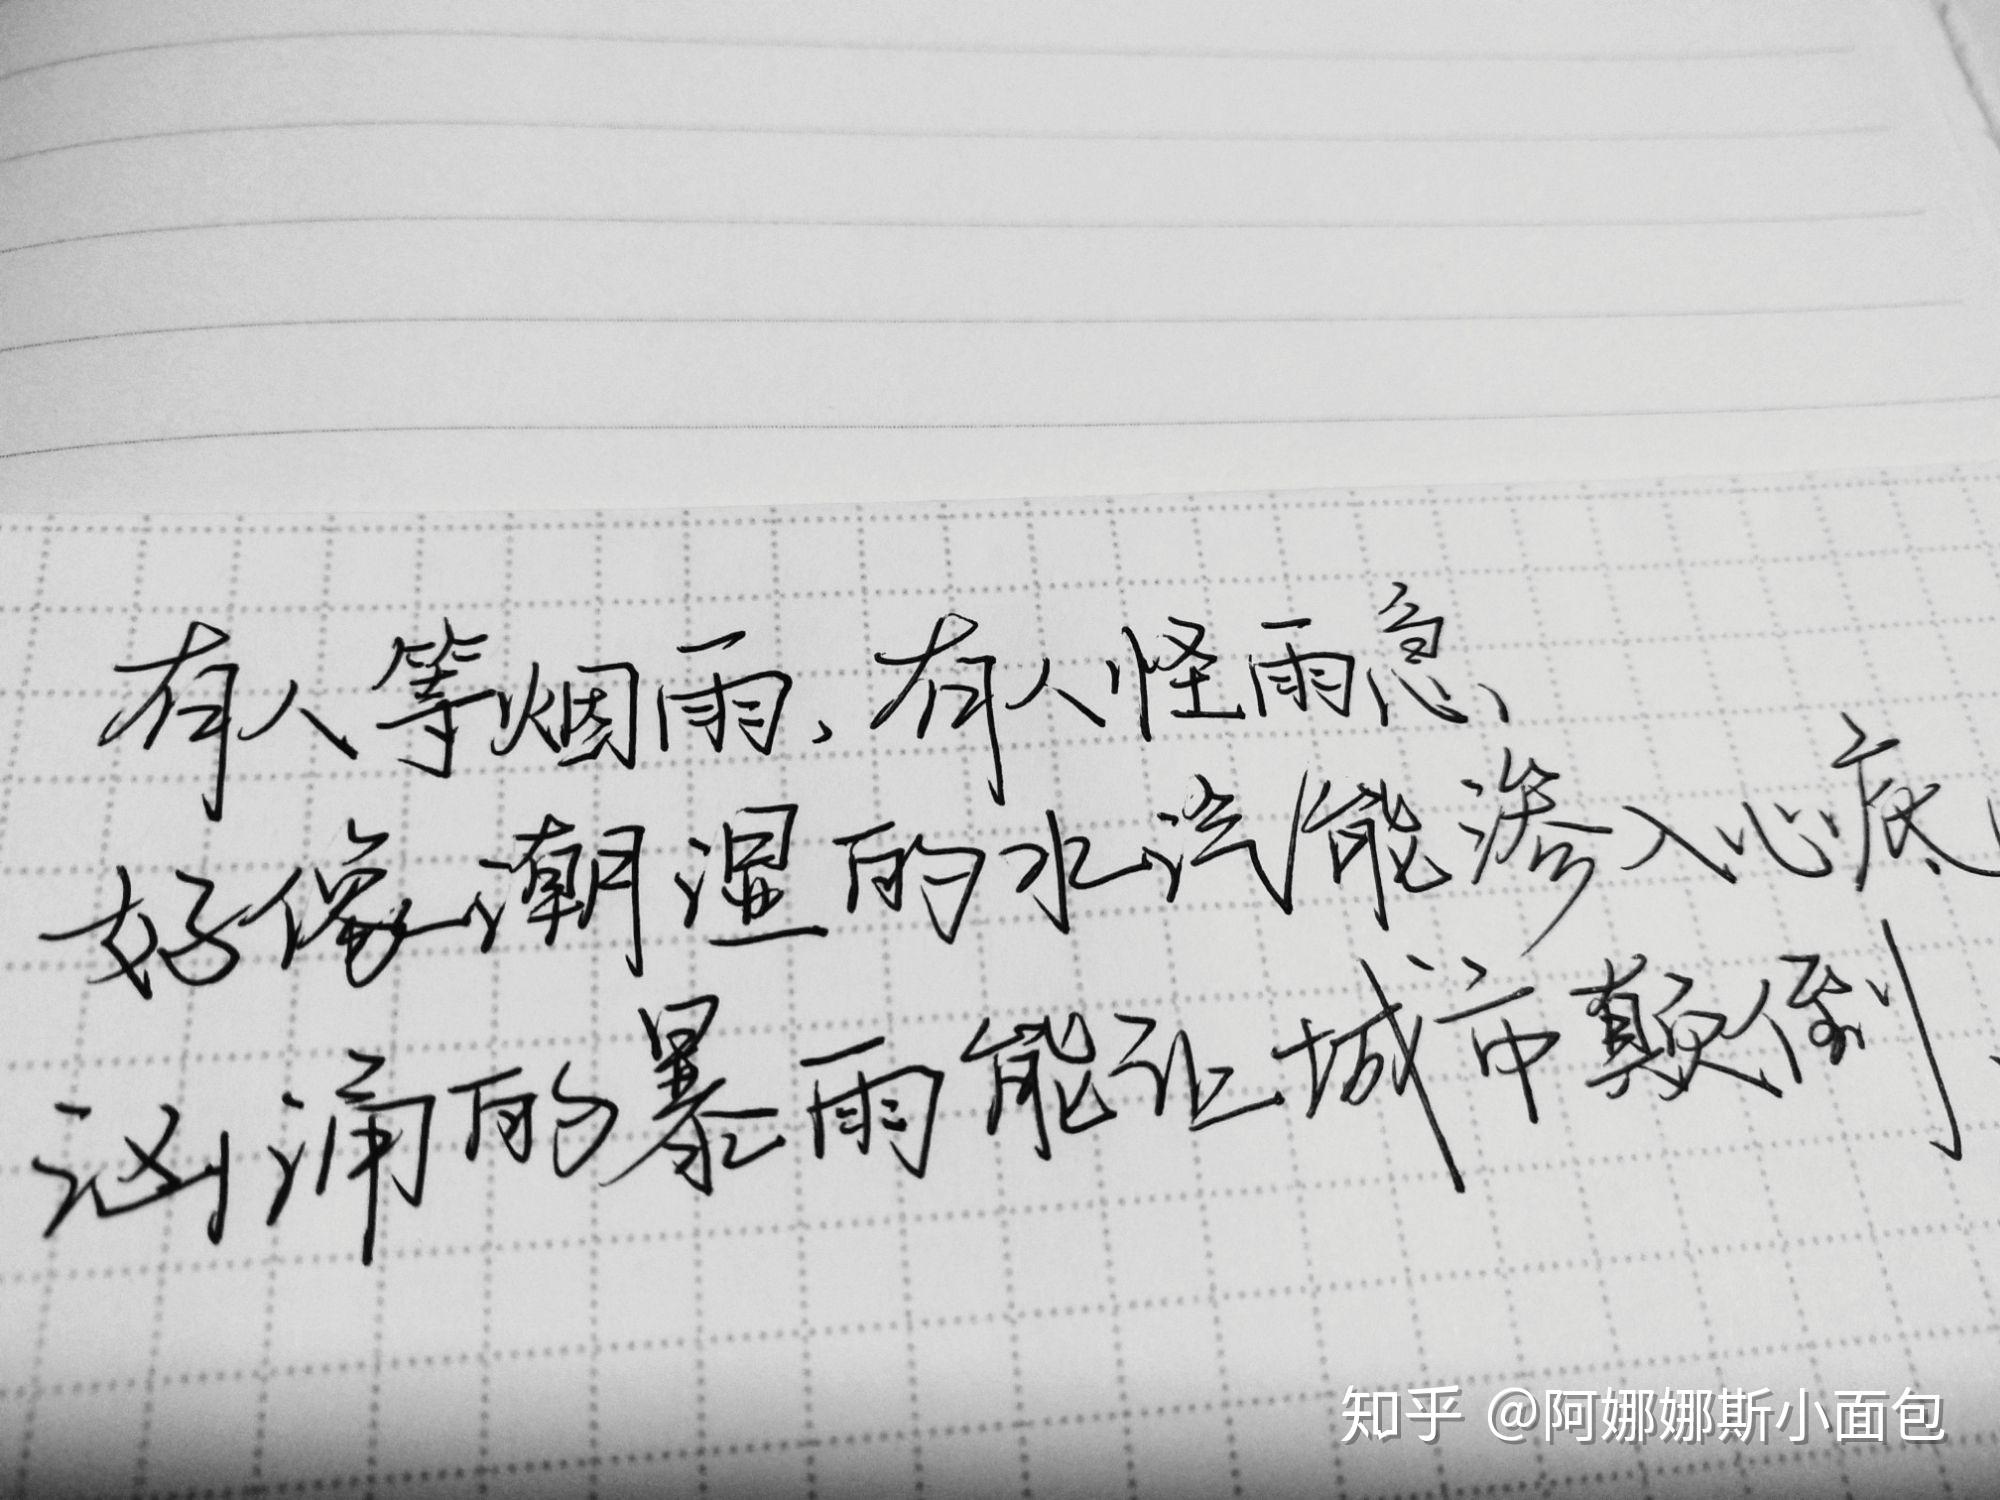 有人等烟雨、有人怪雨急、
好像潮湿的水汽能渗入心底
汹涌的暴雨能让城市颠倒、
知乎 @阿娜娜斯小面包